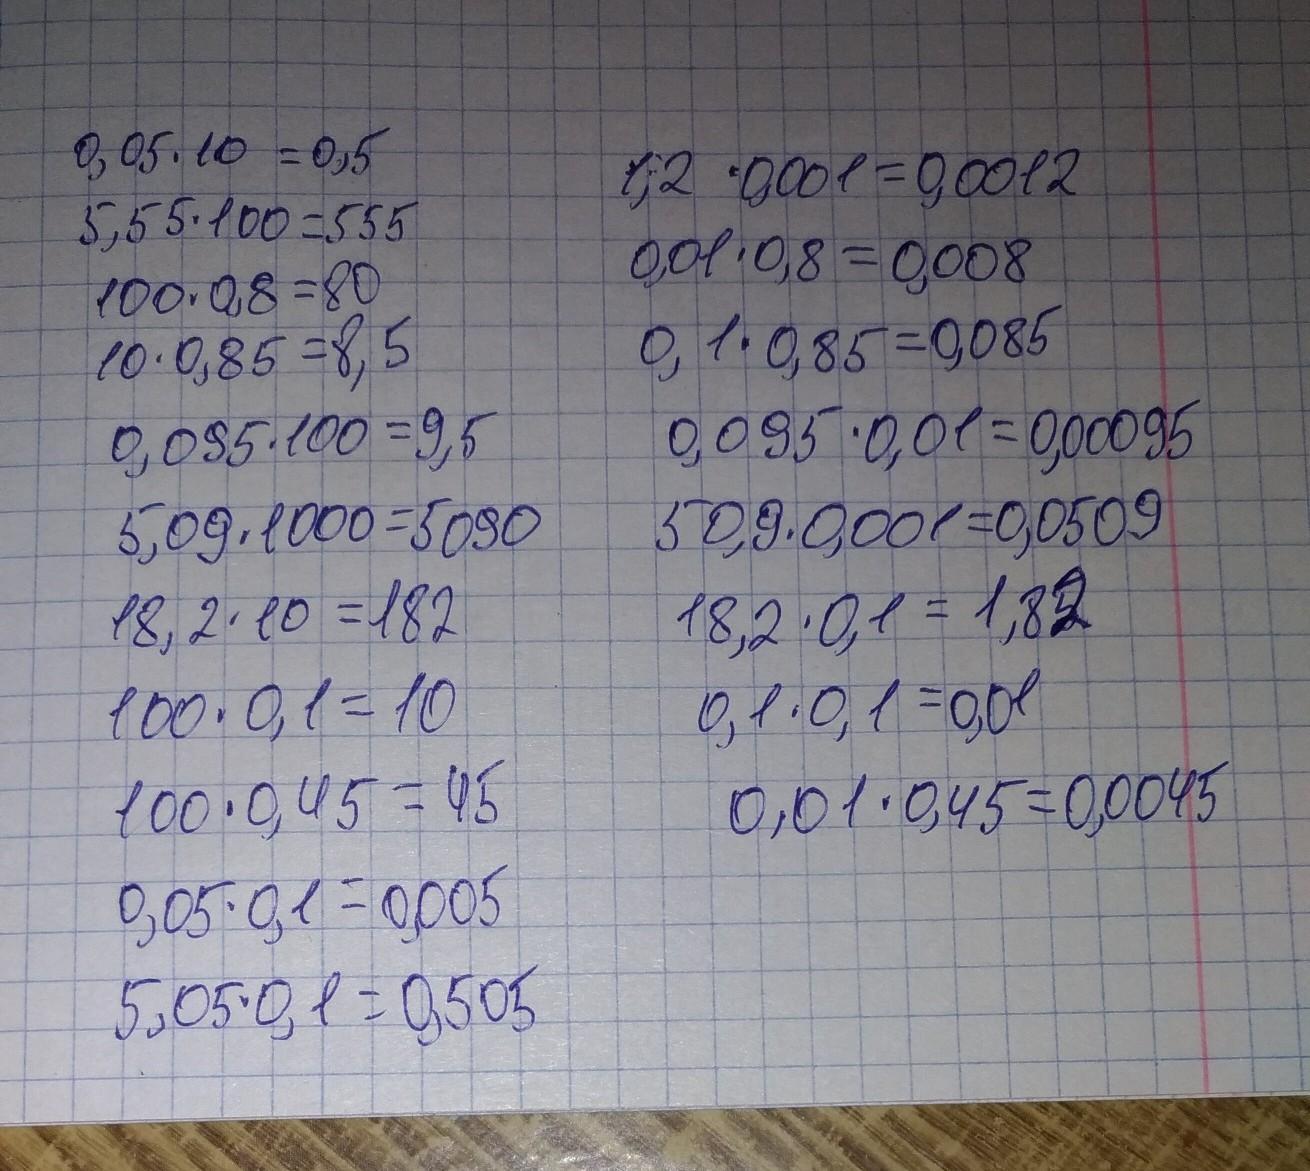 0,05·10 =0,5
5,55·100=555
100·0,8=80
10·0,85=8,5
0,095·100=9,5
5,09·1000=5090
18,2·10=182
100·0,1=10
100·0,45=45
0,05·0,1=0,005
5,05·0,1=0,505
1,2·0,001=0,0012
0,01·0,8=0,008
0,1·0,85=0,085
0,095·0,01=0,00095
50,9·0,001=0,0509
18,2·0,1=1,82
0,1·0,1=0,01
0,01·0,45=0,0045